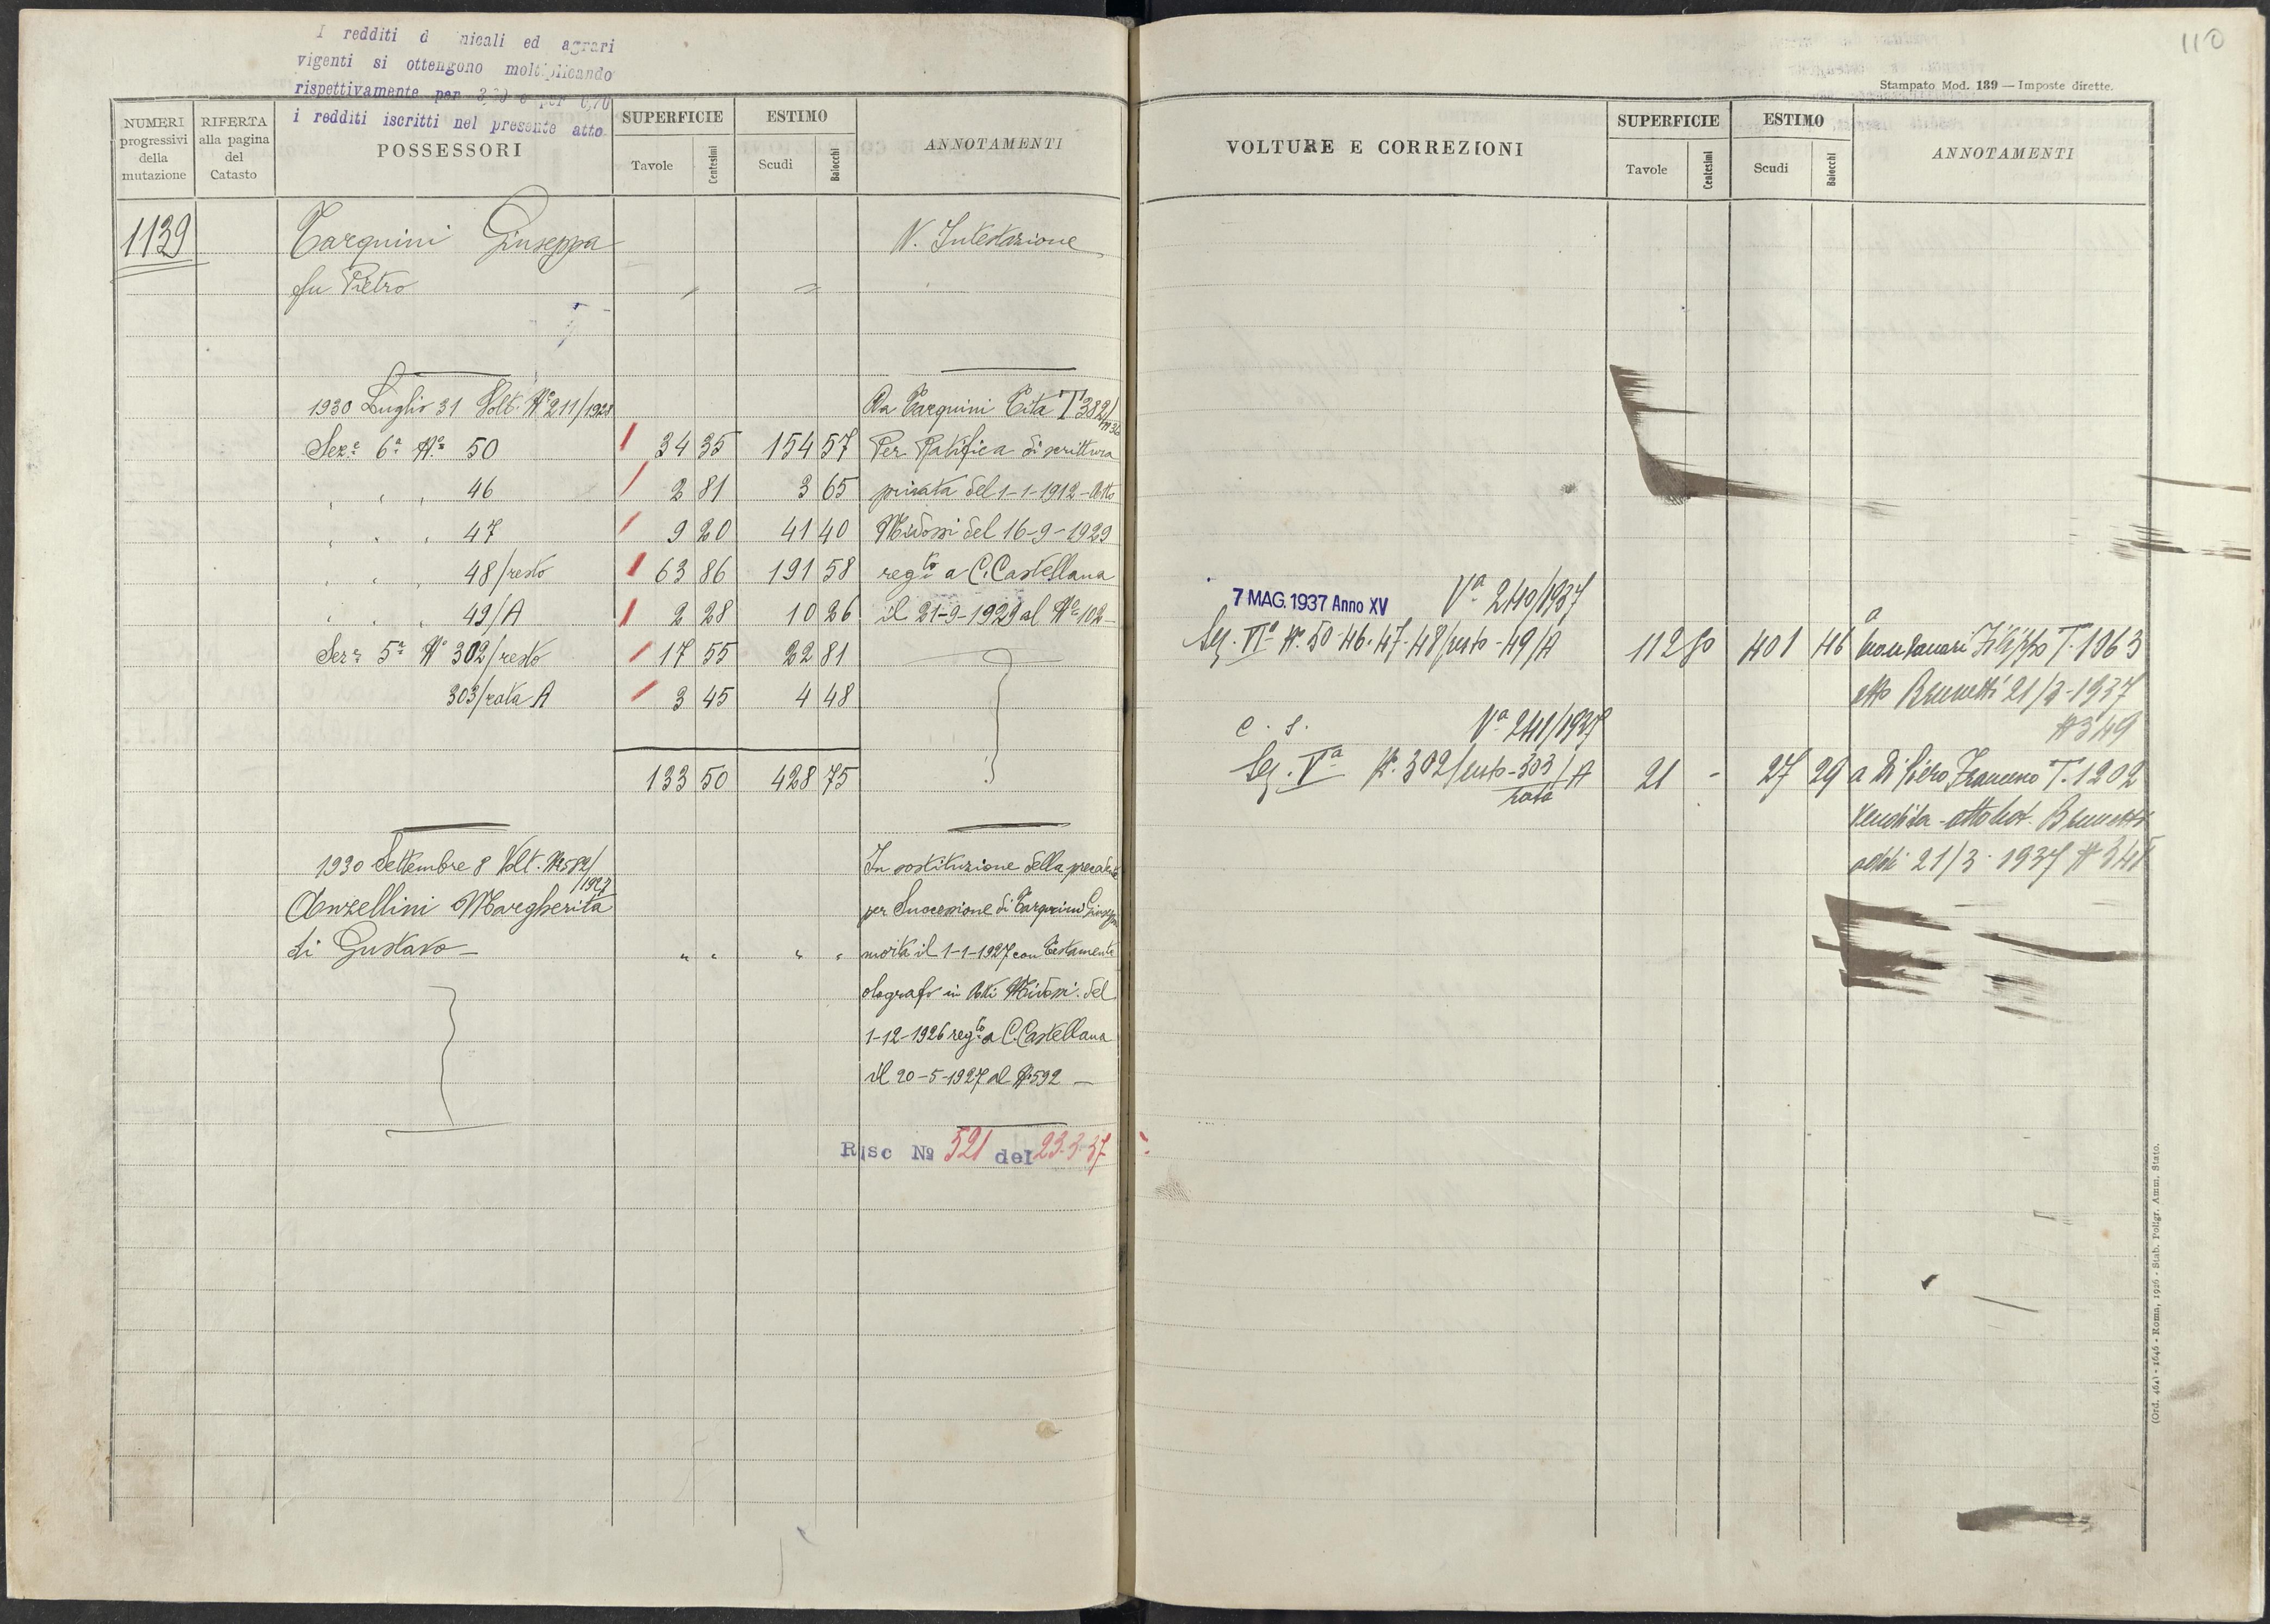 I redditi d nicali ed agrari
vigenti si ottengono moltiplicando
rispettivamente per 3,20 e per 0,70
i redditi iscritti nel presente atto.
NUMERI progressivi della mutazione
RIFERTA alla pagina del Catasto
POSSESSORI
SUPERFICIE
Tavole Centesimi
ESTIMO
Scudi Baiocchi
ANNOTAMENTI
1139 Tarquini Giuseppa N. Intestazione
fu Pietro
1930 Luglio 31 Volt. N° 211/1928 Da Tarquini Tita T 382/
Sez.e 6a N.° 50 34 35 154 57 Per Ratifica di scrittura
" " " 46 2 81 3 65 privata del 1-1-1912 - Atto
" " " 47 9 20 41 40 Midossi del 16-9-1929
" " " 48/resto 63 86 191 58 reg.to a C. Castellana
" " " 49/A 2 28 10 26 il 21-9-1929 al N° 102 -
Sez.e 5a N° 302/resto 17 55 22 81
303/rata A 3 45 4 48
133 50 428 75
1930 Settembre 8 Volt. N. 582/1927 In sostituzione della precedente
Anzellini Margherita per Successione di Tarquini Giuseppa
di Gustavo - " " " " morta il 1-1-1927 con Testamento
olografo in Atti Midossi del
1-12-1926 reg.to a C. Castellana
il 20-5-1927 al N. 592 -
Risc No 521 del 23.3.37
110
Stampato Mod. 139 — Imposte dirette.
VOLTURE E CORREZIONI
SUPERFICIE
Tavole Centesimi
ESTIMO
Scudi Baiocchi
ANNOTAMENTI
7 MAG. 1937 Anno XV Va 240/1937
Sez. VIa N. 50-46-47-48/resto-49/A 112 50 401 46 a Montanari Filippo T. 1063
atto Brunetti 21/3-1937
N 349
c. s. Va 241/1937
Sez. Va N. 302/resto-303/rata A 21 - 27 29 a Di Piero Francesco T. 1202
Vendita - atto not. Brunetti
addi 21/3. 1937 N
(Ord. 464) - 1646 - Roma, 1926 - Stab. Poligr. Amm. Stato.